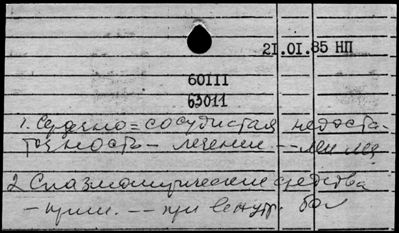 21.01.85 НП
60111
63011
1. Сердечно=сосудистая недоста-
точность – лечение --
2. Спазмолитические средства
– прим. -- при внутр. бол